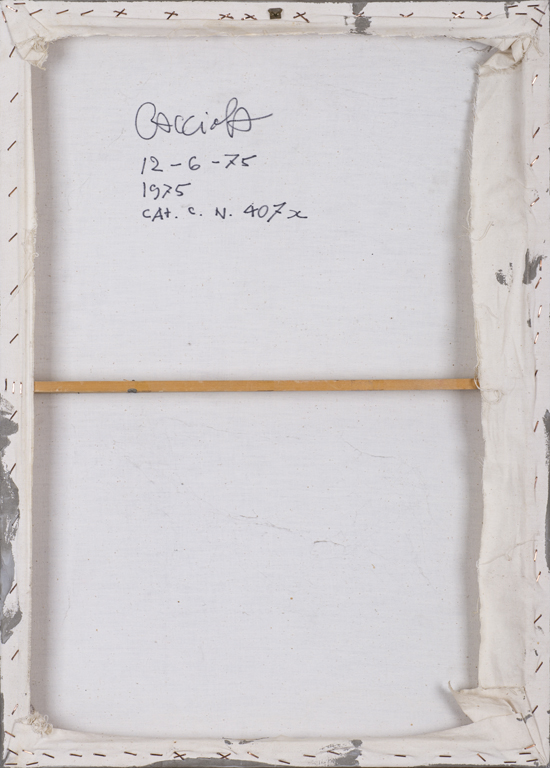 CACCIOLA
12-6-75
1975
CAT. C. N. 407x